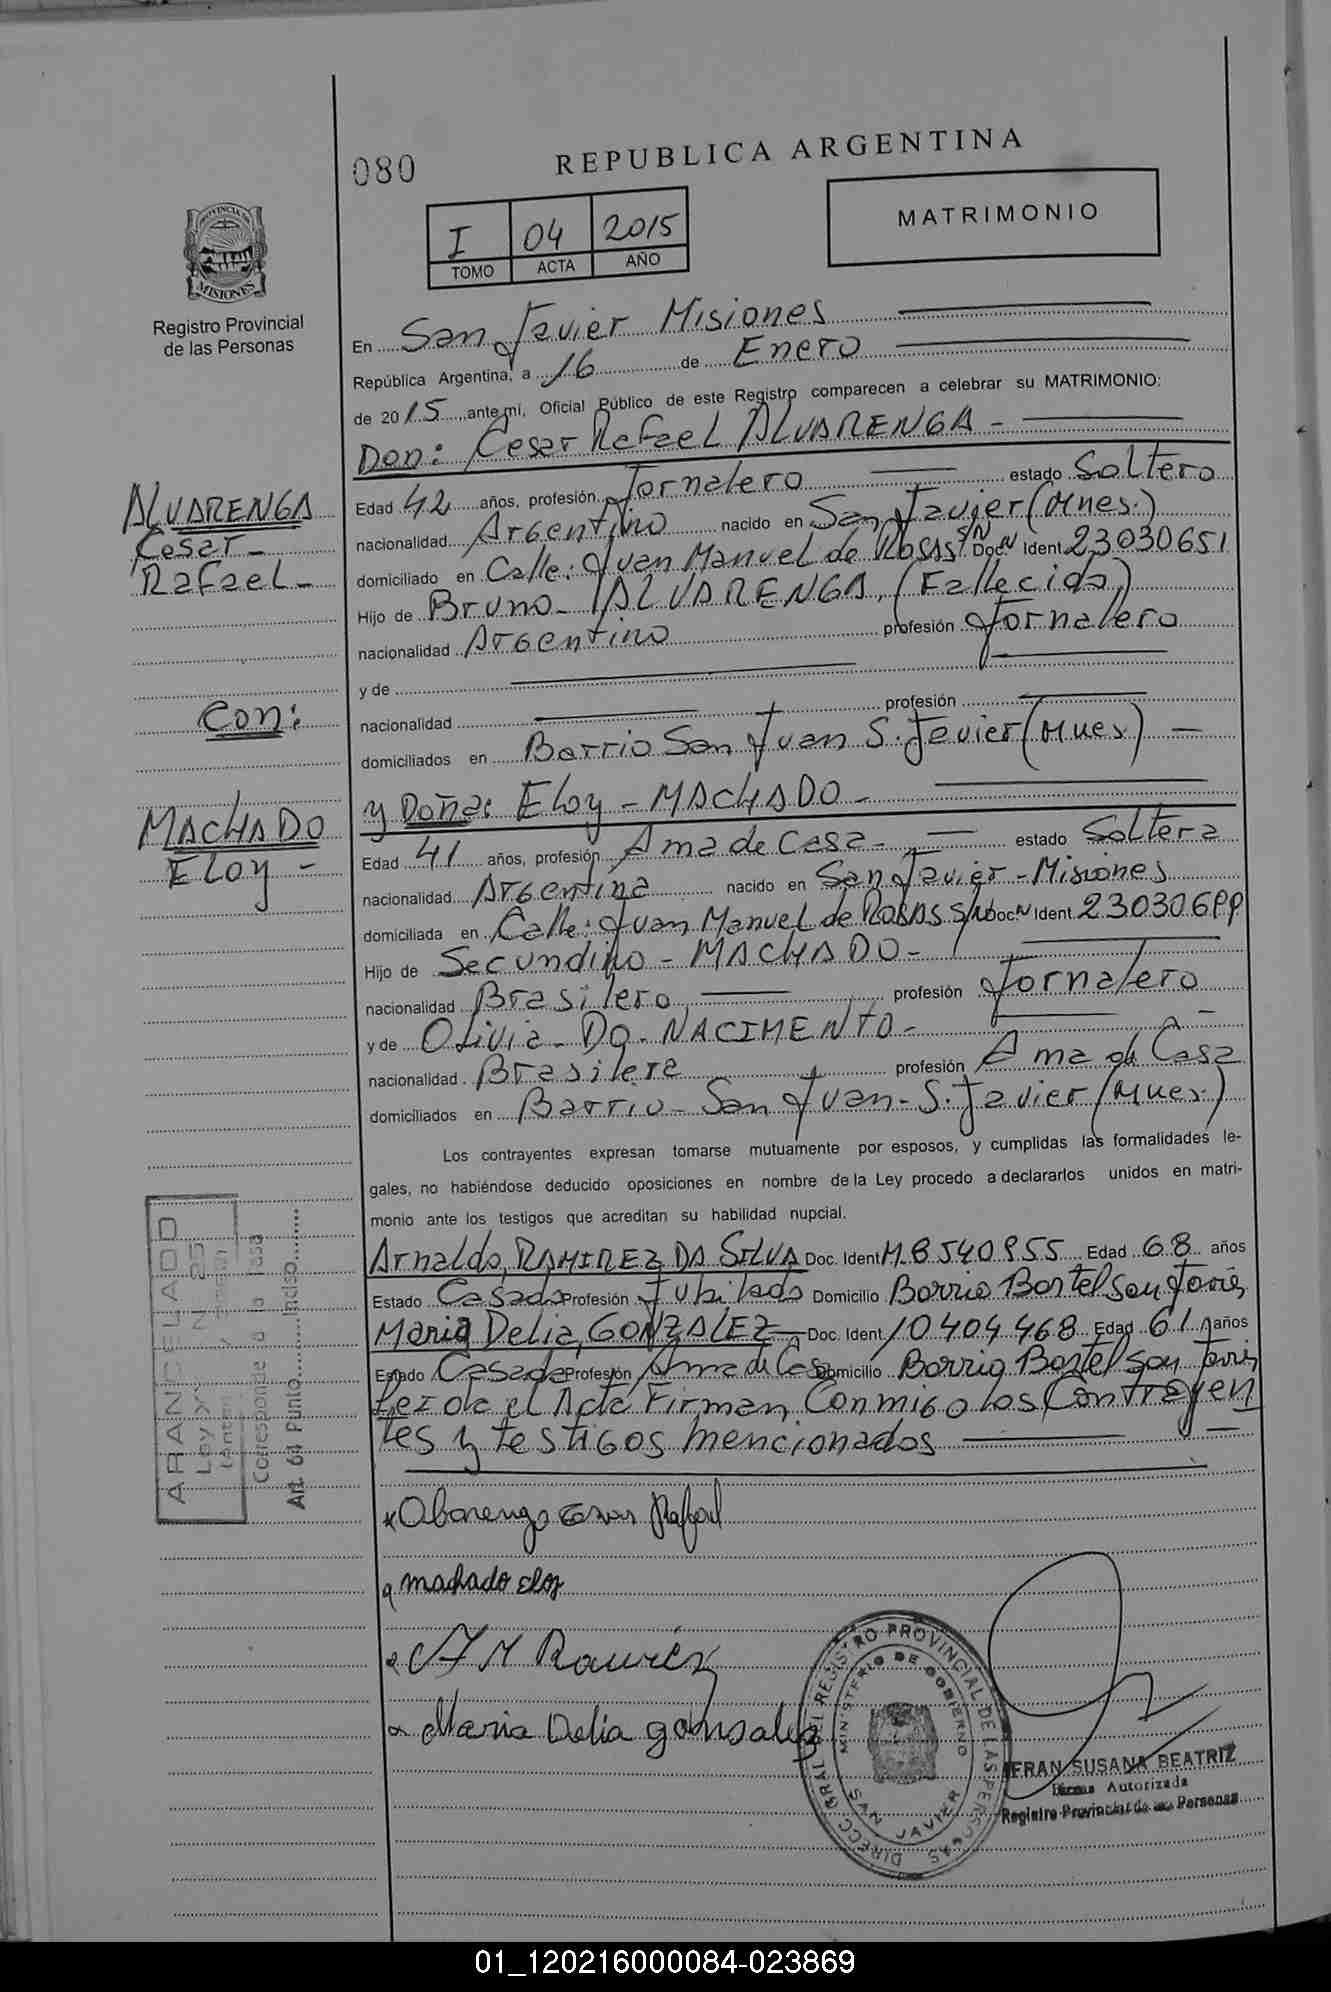 080
REPUBLICA ARGENTINA
I 04 2015
TOMO ACTA AÑO
MATRIMONIO
PROVINCIA DE
MISIONES
Registro Provincial
de las Personas
En San Javier Misiones
República Argentina, a 16 de Enero
de 2015 ante mi, Oficial Público de este Registro comparecen a celebrar su MATRIMONIO:
Don: Cesar Rafael ALVARENGA -
Edad 42 años, profesión Jornalero estado Soltero
nacionalidad Argentino nacido en San Javier (Mnes.)
domiciliado en Calle: Juan Manuel de Rosas S/N Doc. N Ident. 23030651
Hijo de Bruno - ALVARENGA, (Fallecido)
nacionalidad Argentino profesión Jornalero
y de
nacionalidad profesión
domiciliados en Barrio San Juan S. Javier (Mnes)
y Doña: Eloy - MACHADO -
Edad 41 años, profesión Ama de Casa - estado Soltera
nacionalidad Argentina nacido en San Javier - Misiones
domiciliada en Calle: Juan Manuel de ROSAS S/N Doc. N Ident.
Hijo de Secundino - MACHADO -
nacionalidad Brasilero profesión Jornalero
y de Olivia - DO - NACIMENTO -
nacionalidad Brasilera profesión Ama de Casa
domiciliados en Barrio - San Juan - S. Javier (Mnes)
Los contrayentes expresan tomarse mutuamente por esposos, y cumplidas las formalidades le-
gales, no habiéndose deducido oposiciones en nombre de la Ley procedo a declararlos unidos en matri-
monio ante los testigos que acreditan su habilidad nupcial.
Arnaldo, RAMIREZ DA SILVA Doc. Ident M. 8540955 Edad 68 años
Estado Casado Profesión Jubilado Domicilio Barrio San Javier
Maria Delia, GONZALEZ Doc. Ident. 10404468 Edad 61 años
Estado Casada Profesión Ama de Casa Domicilio Barrio San Javier
Leida el Acta Firman Conmigo los Contrayen
tes y testigos mencionados
ALVARENGA
Cesar -
Rafael -
Con:
MACHADO
Eloy -
ARANCELADO
Corresponde a la Tasa
Art. 64 Punto Inciso
Alvarenga Cesar Rafael
machado eloy
Ramirez
Maria Delia gonsalez
DIRECC. GRAL. DEL REGISTRO PROVINCIAL DE LAS PERSONAS
MINISTERIO DE GOBIERNO
SAN JAVIER
FRAN SUSANA BEATRIZ
Firma Autorizada
Registro Provincial de las Personas
01_120216000084-023869